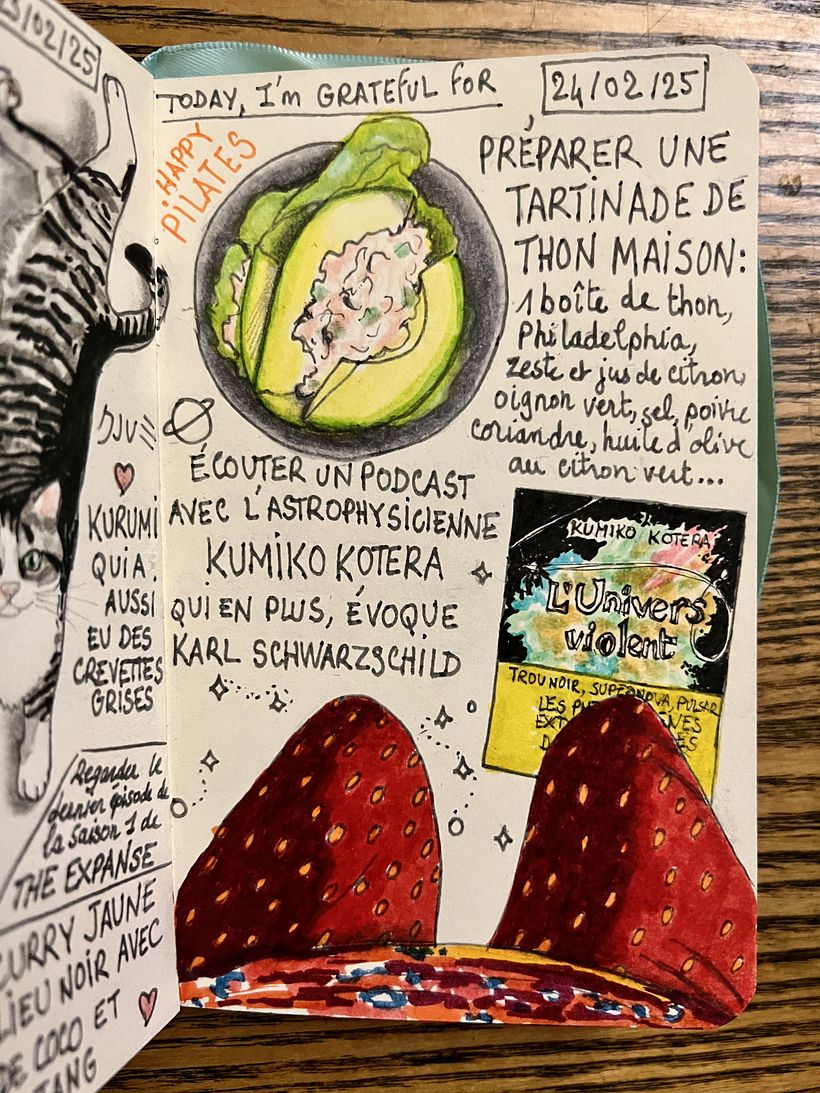 /02/25
KURUMI
QUI A
AUSSI
EU DES
CREVETTES
GRISES
Regarder le
dernier épisode de
la saison 1 de
THE EXPANSE
CURRY JAUNE
LIEU NOIR AVEC
DE COCO ET
TODAY, I'm GRATEFUL FOR
24/02/25
HAPPY
PILATES
PRÉPARER UNE
TARTINADE DE
THON MAISON:
1 boîte de thon,
Philadelphia,
zeste et jus de citron,
oignon vert, sel, poivre
coriandre, huile d'olive
au citron vert...
ÉCOUTER UN PODCAST
AVEC L'ASTROPHYSICIENNE
KUMIKO KOTERA
QUI EN PLUS, ÉVOQUE
KARL SCHWARZSCHILD
KUMIKO KOTERA
L'Univers
violent
TROU NOIR, SUPERNOVA, PULSAR
LES